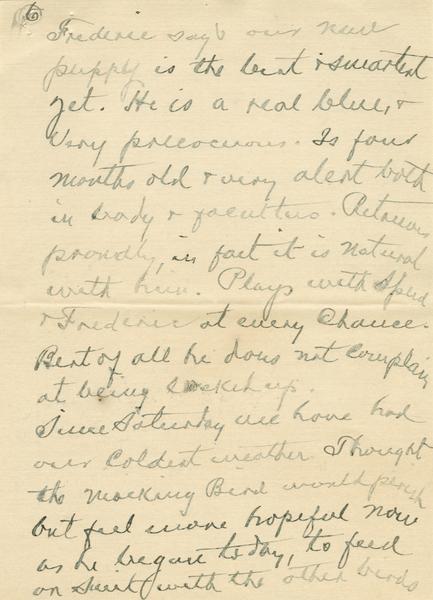 6
Frederic says our new
puppy is the best & smartest
yet. He is a real blue, &
very precocious. Is four
months old & very alert both
in body & faculties. Retrieves
proudly, in fact it is natural
with him. Plays with Speed
& Frederic at every chance.
Best of all he does not complain
at being locked up.
Since Saturday we have had
our coldest weather Thought
the Mocking Bird would perish
but feel more hopeful now
as he began today, to feed
on suet with the other birds